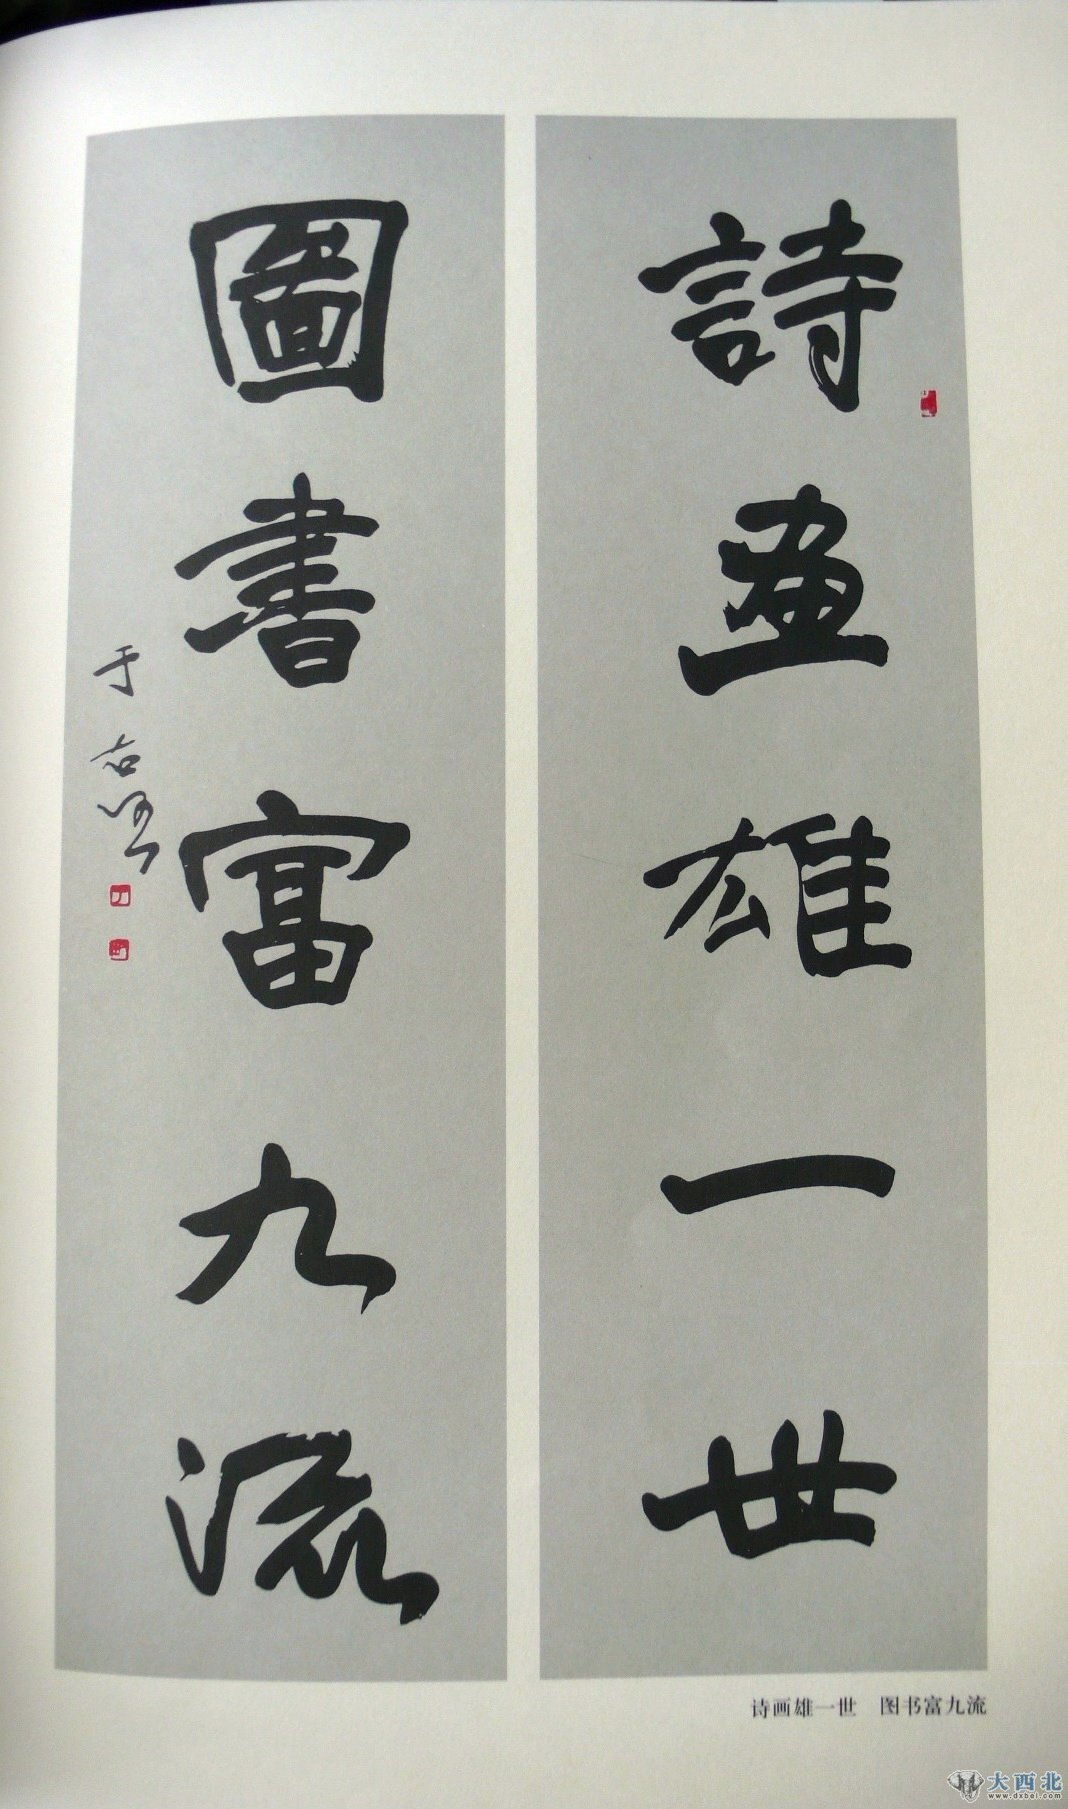 詩畫雄一世
圖書富九流
于右任
诗画雄一世 图书富九流
大西北
www.dxbei.com